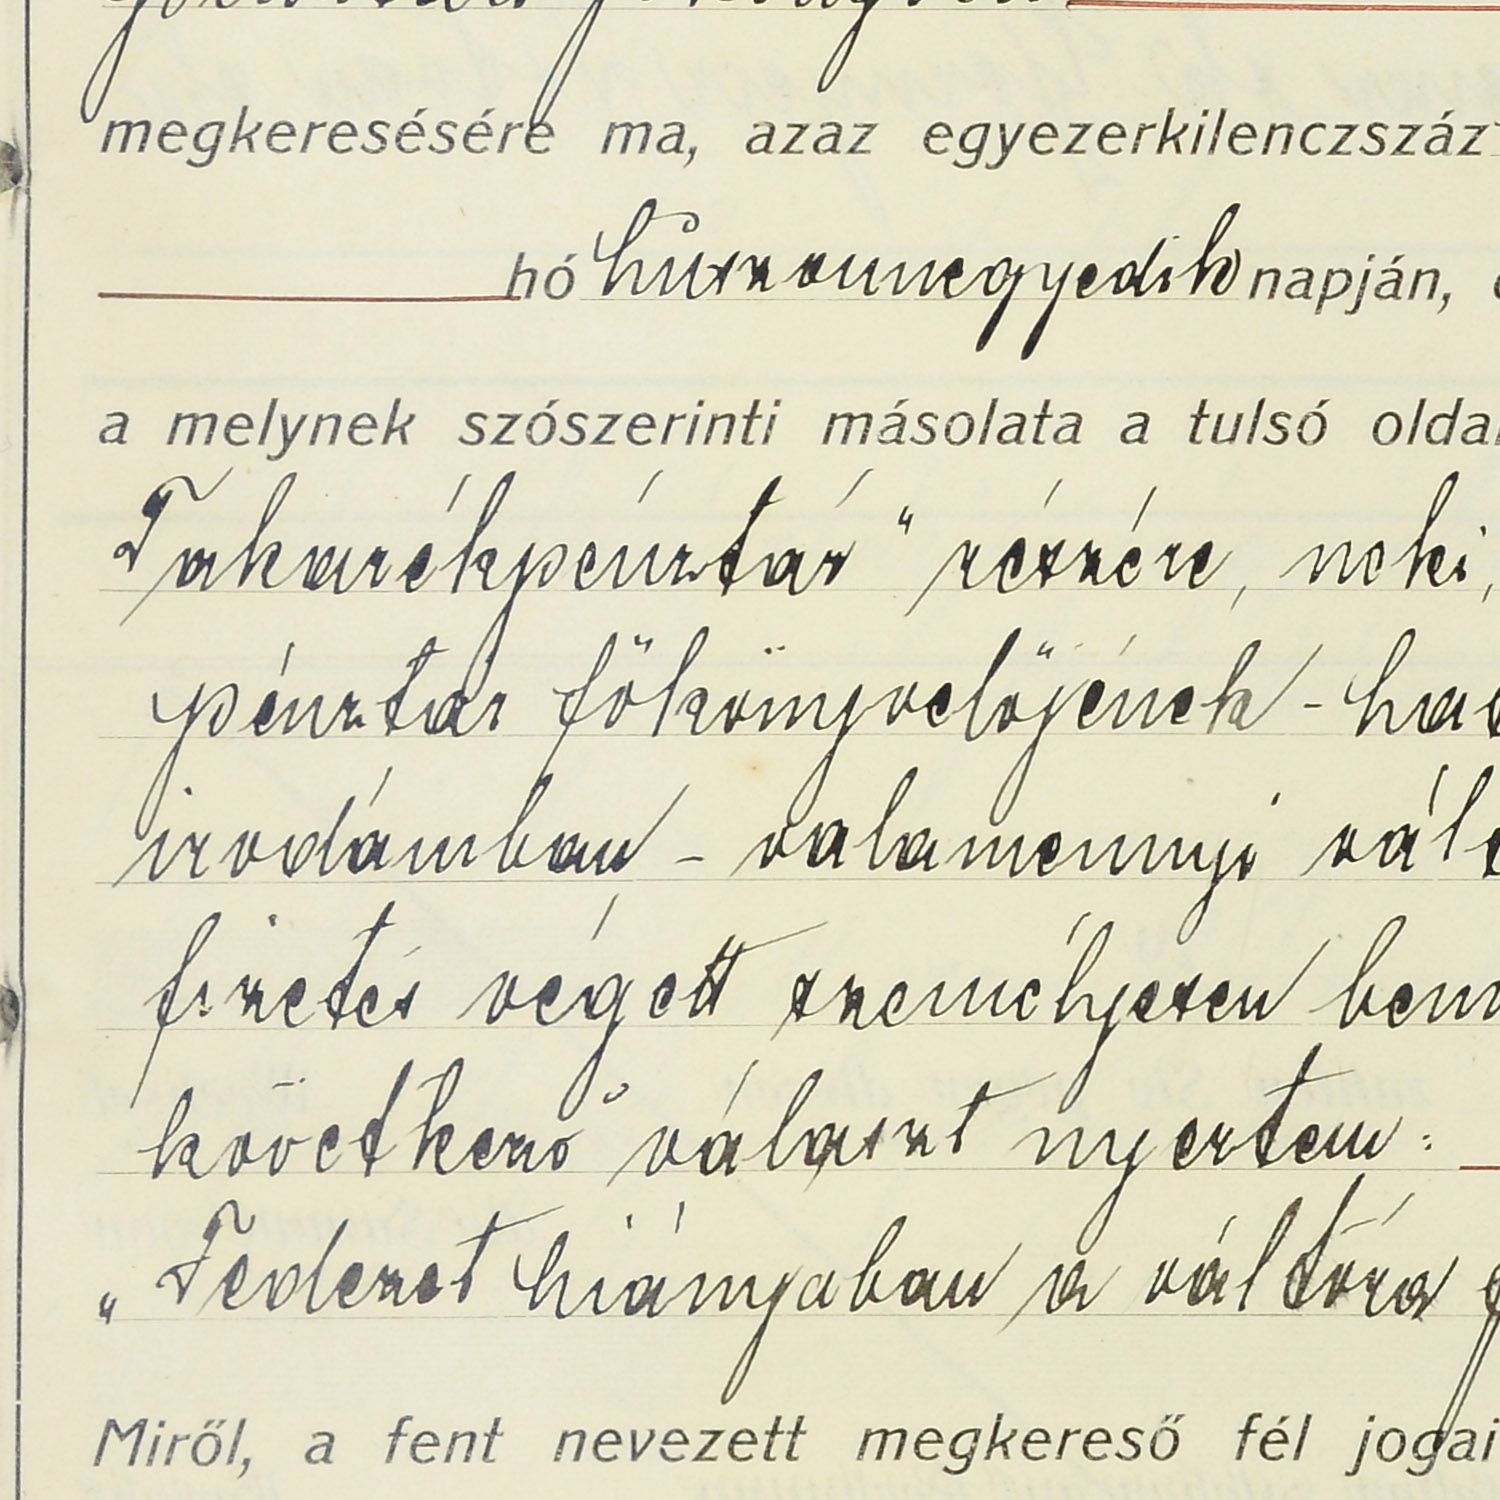 megkeresésére ma, azaz egyezerkilenczszáz
hó huszonnegyedik napján,
a melynek szószerinti másolata a tulsó olda
Takarékpénztár" részére, neki,
pénztár főkönyvelőjének - ha
irodámban - valamennyi vál
fizetés végett személyesen
következő választ nyertem:
„Fedezet hiányában a váltóra
Miről, a fent nevezett megkereső fél jogai